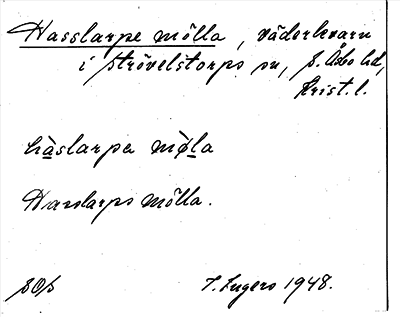 Hasslarpe mölla, väderkvarn
i Strövelstorps sn, S. Åsbo hd,
Krist. l.
hàslarpa mø̀la
Harslarps mölla.
SOS
T. Lugers 1948.